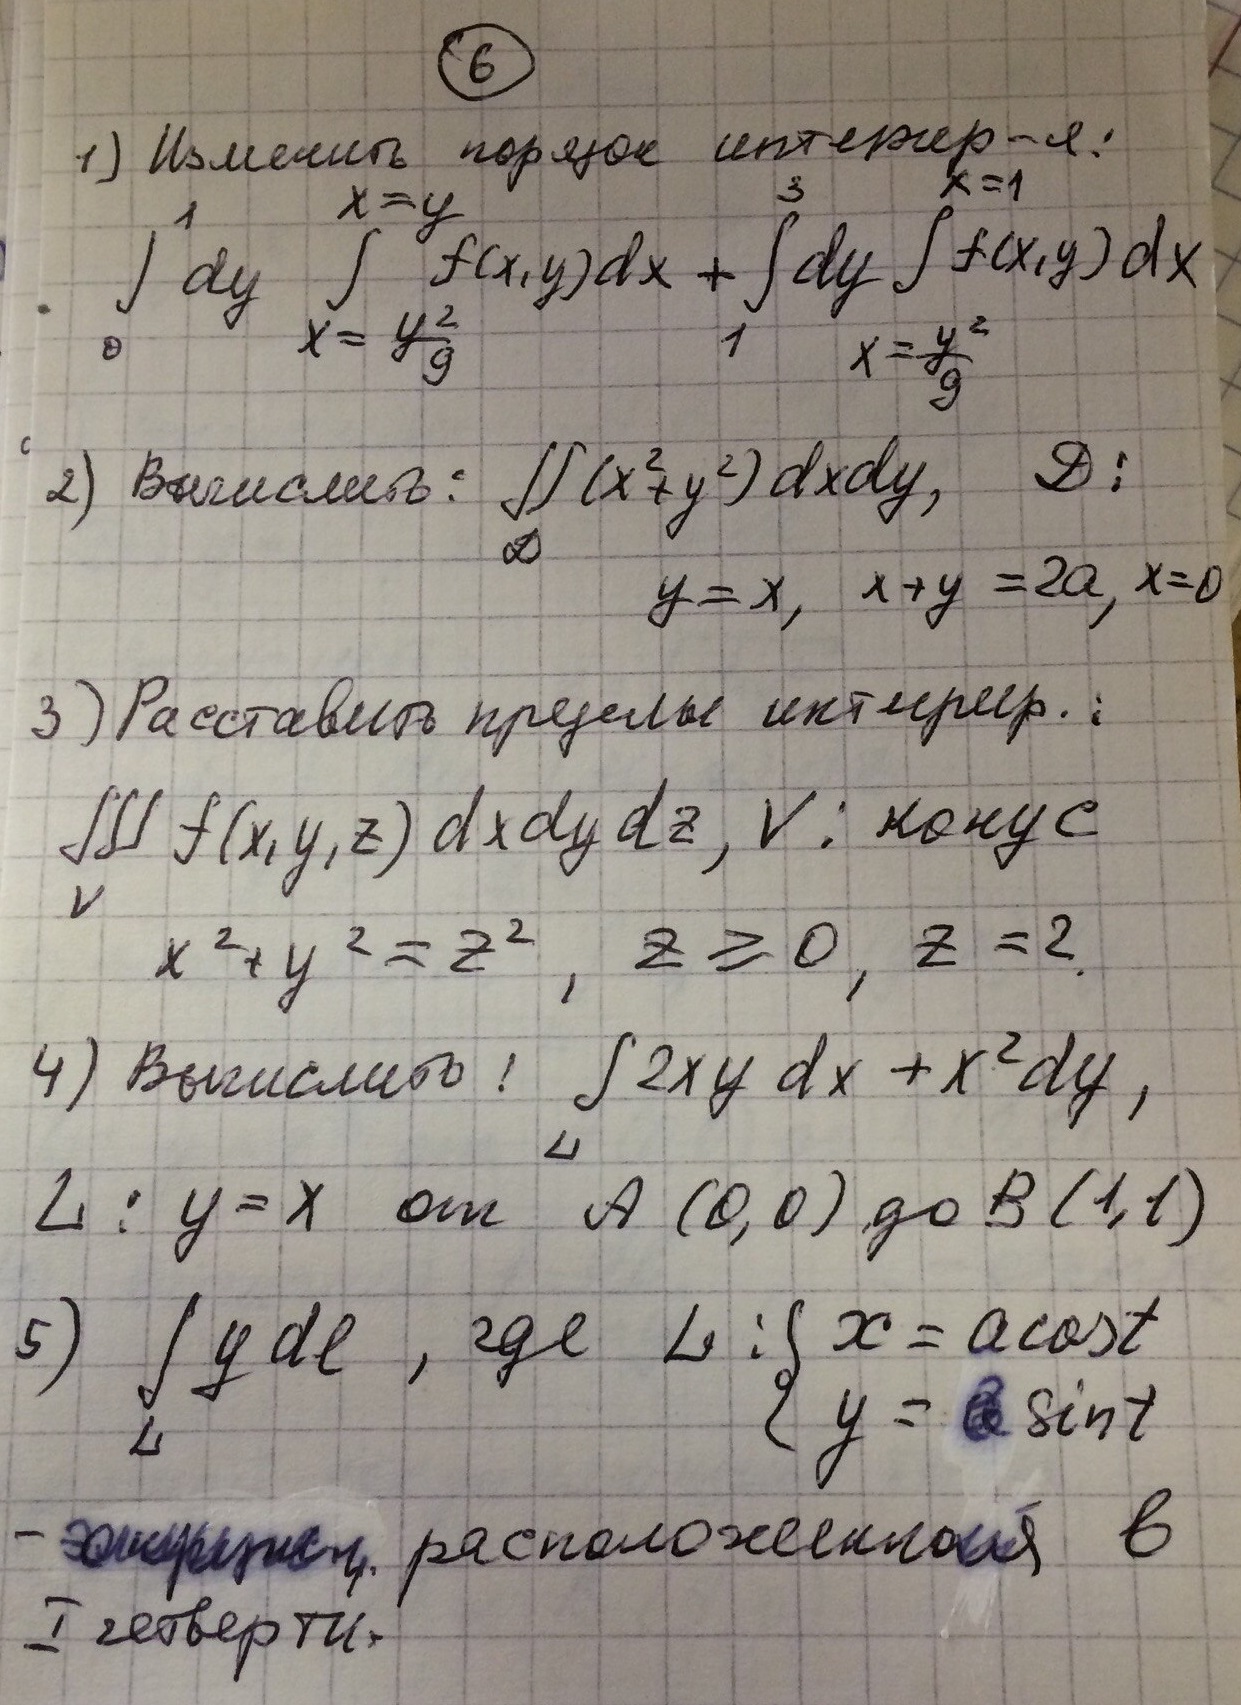 6
1) Изменить порядок интегрир-я:
∫₀¹ dy ∫_{x=y²/9}^{x=y} f(x,y)dx + ∫₁³ dy ∫_{x=y²/9}^{x=1} f(x,y)dx
2) Вычислить: ∬_D (x²+y²)dxdy, D:
y=x, x+y=2a, x=0
3) Расставить пределы интегрир.:
∭_V f(x,y,z)dxdydz, V: конус
x²+y²=z², z≥0, z=2.
4) Вычислить: ∫_L 2xy dx + x²dy,
L: y=x от A(0,0) до B(1,1)
5) ∫_L y dl, где L: { x = a cost
y = sint
- расположенной в
I четверти.